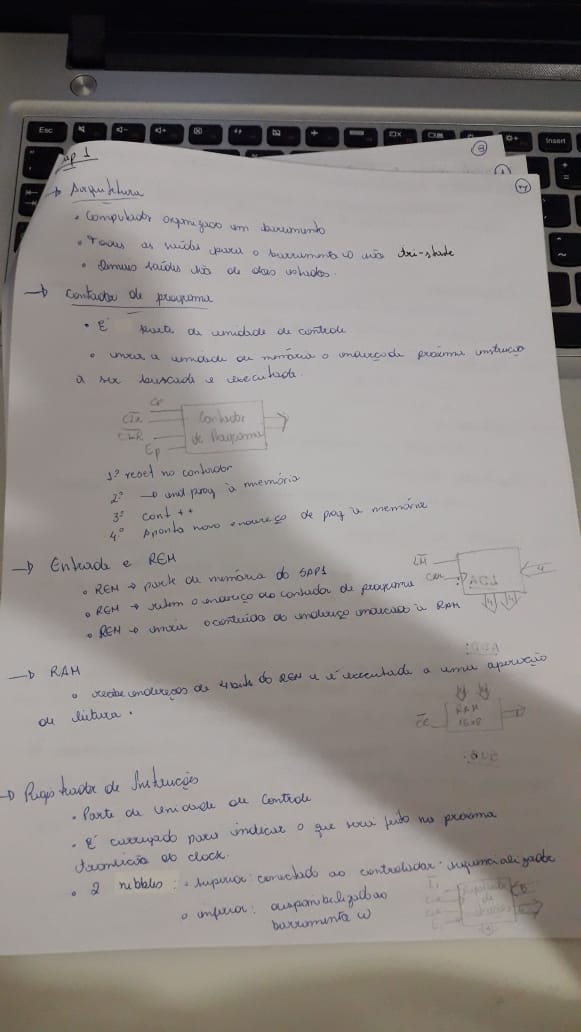 Esc
Insert
ap 1
→ Arquitetura
• Computador organizado em barramento
• Todas as saídas para o barramento W são tri-state
• Demais saídas são de dois estados.
→ Contador de programa
• É parte da unidade de controle
• envia a unidade de memória o endereço da próxima instrução
a ser buscada e executada.
CP
CLK
CLR
Ep
Contador
de Programa
1º reset no contador
2º → end prog à memória
3º cont ++
4º Aponta novo endereço de prog à memória
→ Entrada e REM
• REM → parte da memória do SAP1
• REM → retem o endereço do contador de programa
• REM → envia o conteúdo do endereço indicado à RAM
LM
4
→ RAM
• recebe endereços de 4 bits do REM e é executada a uma operação
de leitura.
CE
RAM
16x8
→ Registrador de Instruções
• Parte da unidade de controle
• É carregado para indicar o que sera feito na proxima
transição do clock.
• 2 nibbles: • superior: conectado ao controlador-sequencializador
• inferior: disponibilizado ao
barramento W